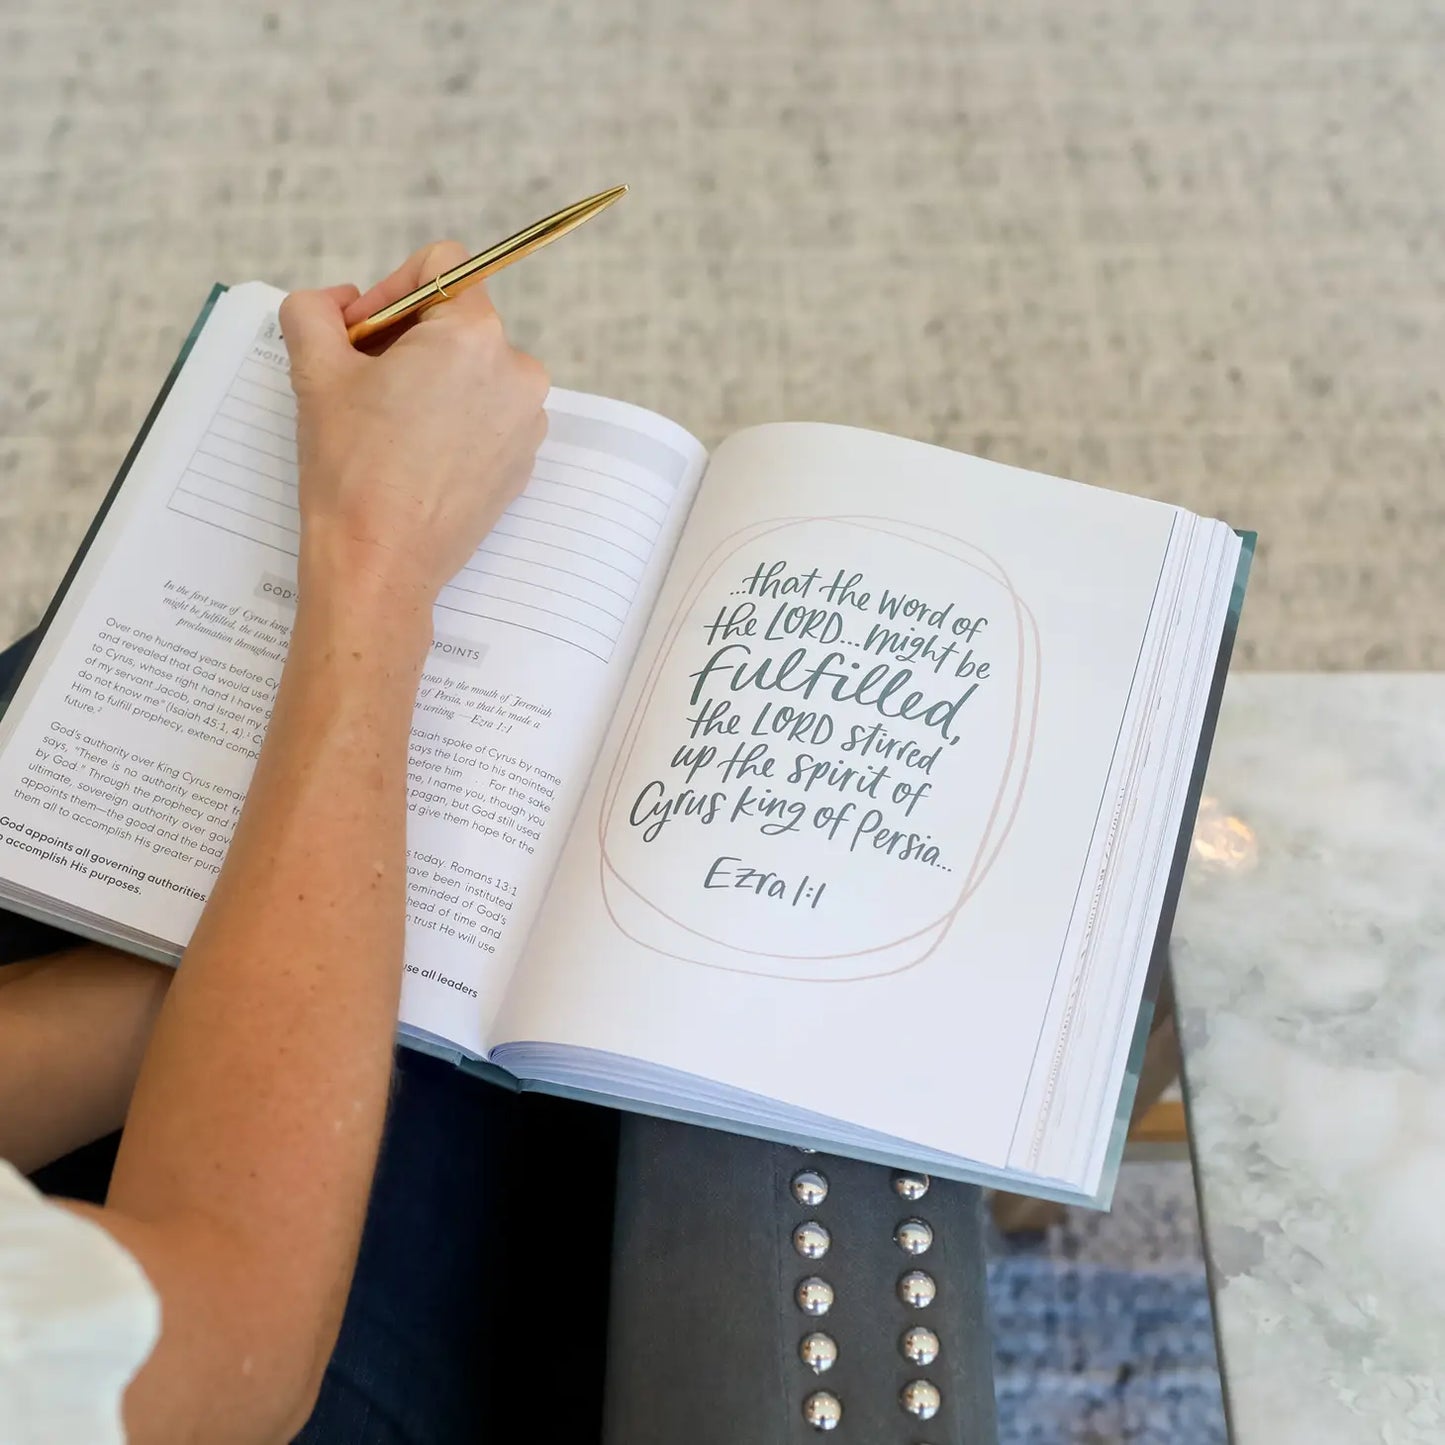 NOTES
GOD'S
PPOINTS
In the first year of Cyrus king
might be fulfilled, the LORD
proclamation throughout
LORD by the mouth of Jeremiah
of Persia, so that he made a
in writing —Ezra 1:1
Over one hundred years before Cy
and revealed that God would use
to Cyrus, whose right hand I have
of my servant Jacob, and Israel my
do not know me" (Isaiah 45:1, 4).¹
Him to fulfill prophecy, extend
future.²
God's authority over King Cyrus remain
says, "There is no authority except
by God." Through the prophecy and
ultimate, sovereign authority over
appoints them—the good and the bad,
them all to accomplish His greater
God appoints all governing authorities
accomplish His purposes.
Isaiah spoke of Cyrus by name
says the Lord to his anointed,
before him . . For the sake
me, I name you, though you
pagan, but God still used
give them hope for the
today. Romans 13:1
have been instituted
reminded of God's
head of time and
trust He will use
use all leaders
...that the word of
the LORD...might be
fulfilled,
the LORD stirred
up the spirit of
Cyrus king of Persia...
Ezra 1:1